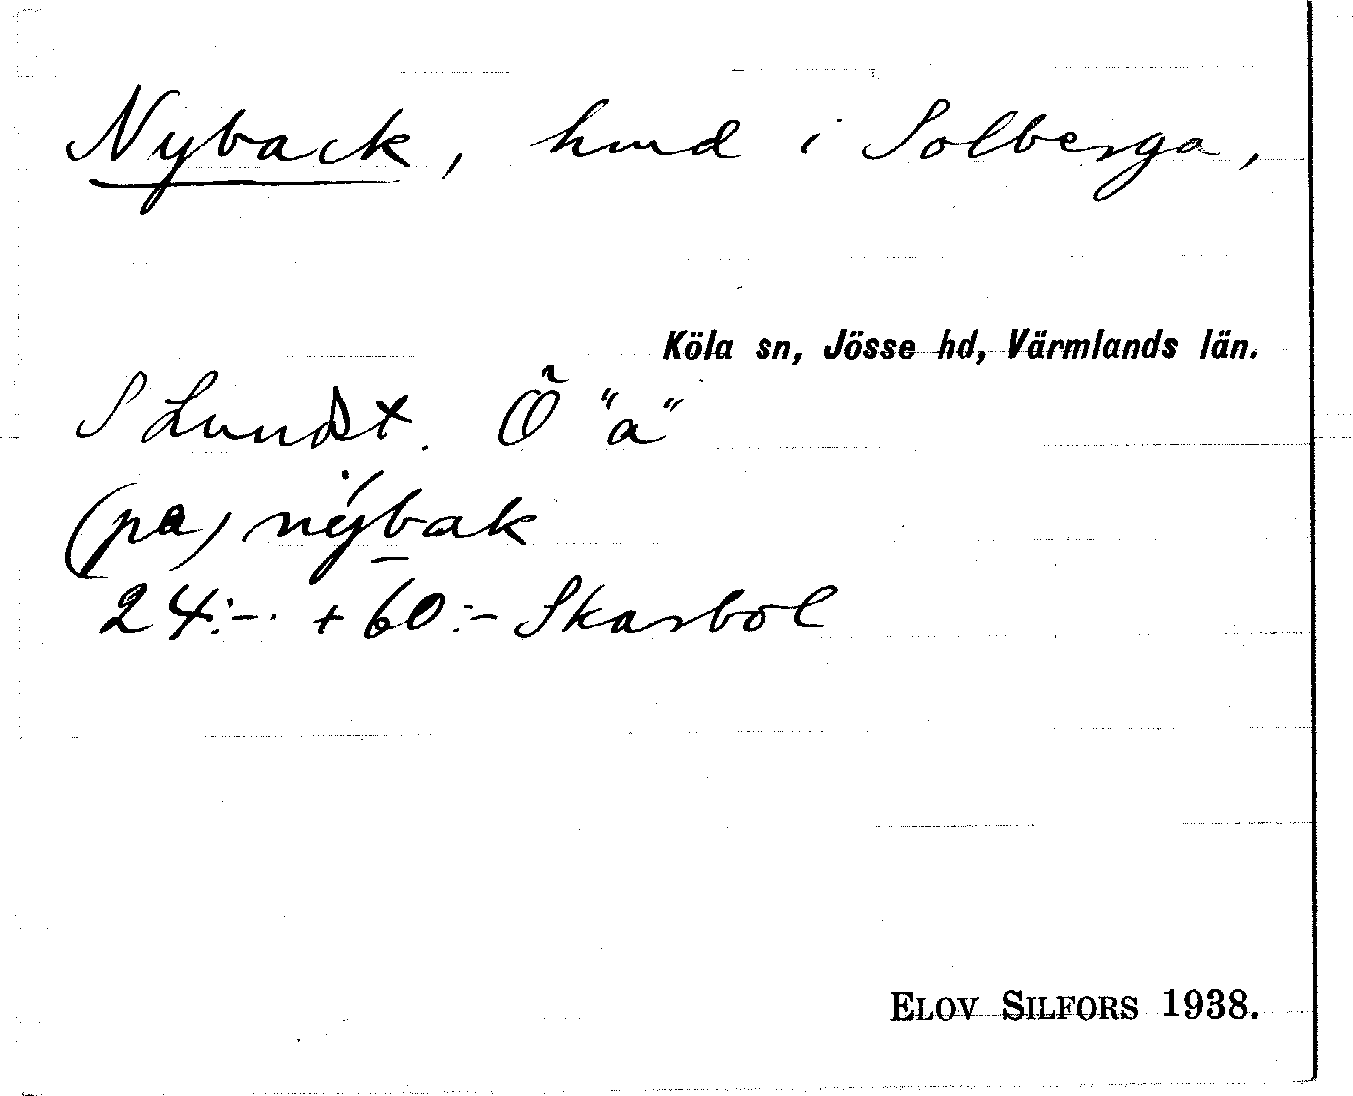 Nyback, hmd i Solberga,
Köla sn, Jösse hd, Värmlands län.
S Lundst. Õ "a"
(pa) nýbak
24:-. + 60:- Skarbol
ELOV SILFORS 1938.